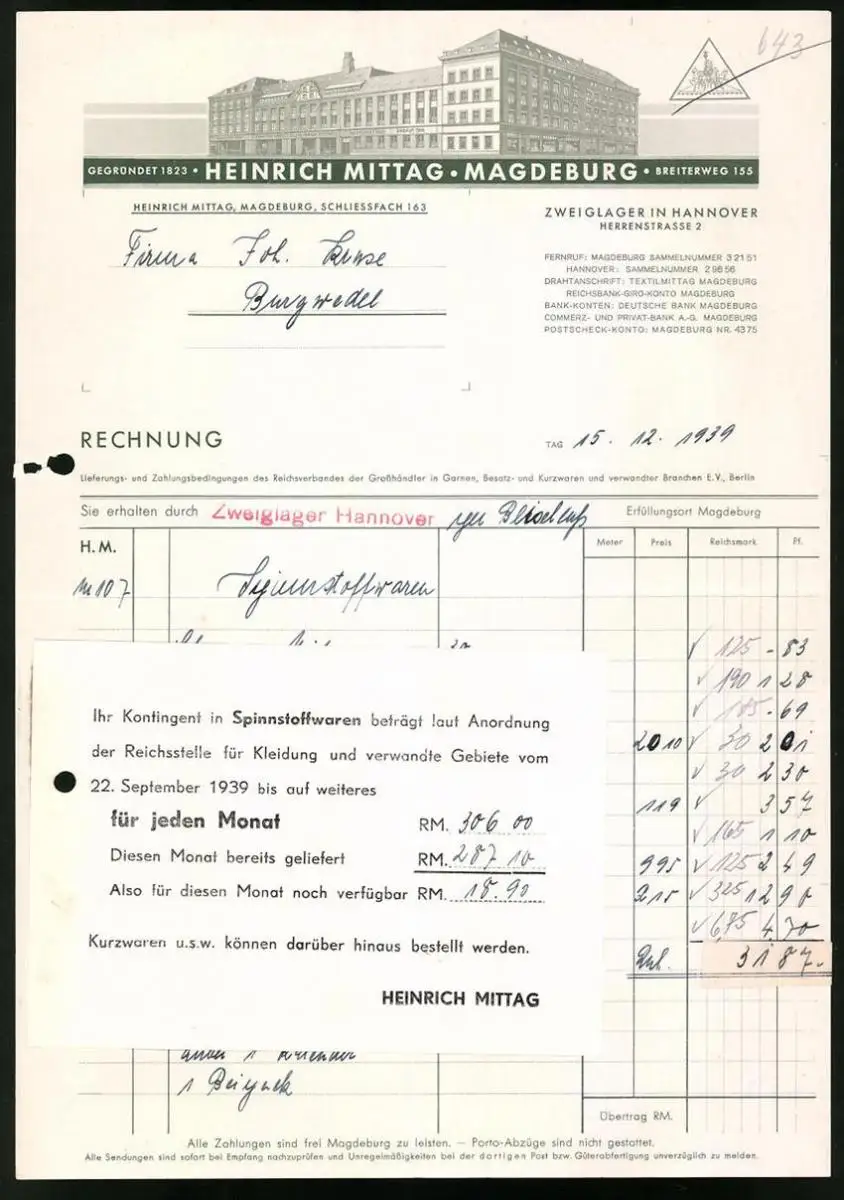 643
GEGRÜNDET 1823 • HEINRICH MITTAG • MAGDEBURG • BREITERWEG 155
HEINRICH MITTAG, MAGDEBURG, SCHLIESSFACH 163
Firma Joh.
Burgwedel
ZWEIGLAGER IN HANNOVER
HERRENSTRASSE 2
FERNRUF: MAGDEBURG SAMMELNUMMER 32151
HANNOVER: SAMMELNUMMER 29856
DRAHTANSCHRIFT: TEXTILMITTAG MAGDEBURG
REICHSBANK-GIRO-KONTO MAGDEBURG
BANK-KONTEN: DEUTSCHE BANK MAGDEBURG
COMMERZ- UND PRIVAT-BANK A.-G. MAGDEBURG
POSTSCHECK-KONTO: MAGDEBURG NR. 4375
RECHNUNG
TAG 15. 12. 1939
Lieferungs- und Zahlungsbedingungen des Reichsverbandes der Großhändler in Garnen, Besatz- und Kurzwaren und verwandter Branchen E.V., Berlin
Sie erhalten durch Zweiglager Hannover per Erfüllungsort Magdeburg
H. M. Meter Preis Reichsmark Pf.
107
125 - 83
190 1 28
69
2010 30 2 01
30 2 30
119 3 57
165 1 10
995 125 2 49
215 325 12 90
6,75 4 70
31 87.
Ihr Kontingent in Spinnstoffwaren beträgt laut Anordnung
der Reichsstelle für Kleidung und verwandte Gebiete vom
22. September 1939 bis auf weiteres
für jeden Monat RM. 306 00
Diesen Monat bereits geliefert RM. 287 10
Also für diesen Monat noch verfügbar RM. 18.90
Kurzwaren u.s.w. können darüber hinaus bestellt werden.
HEINRICH MITTAG
1 Beipack
Übertrag RM.
Alle Zahlungen sind frei Magdeburg zu leisten. — Porto-Abzüge sind nicht gestattet.
Alle Sendungen sind sofort bei Empfang nachzuprüfen und Unregelmäßigkeiten bei der dortigen Post bzw. Güterabfertigung unverzüglich zu melden.